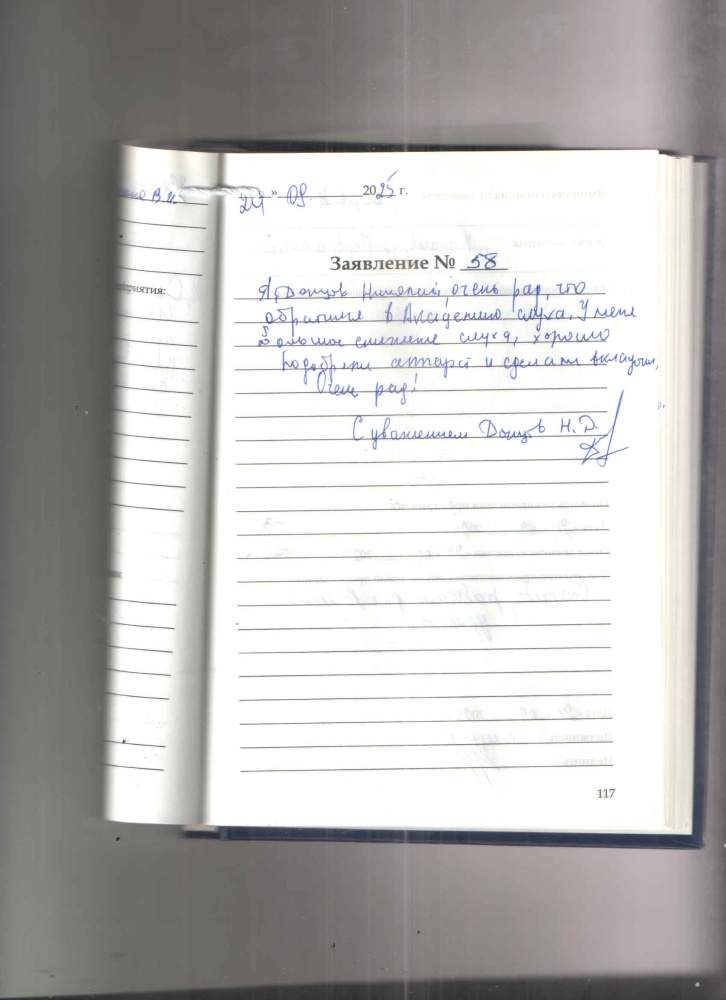 "24" 09 2025 г.
Заявление № 58
Я, Донцов Николай, очень рад, что
обратился в Академию слуха. У меня
большое снижение слуха, хорошо
подобрали аппарат и сделали вкладыши.
Очень рад!
С уважением Донцов Н.Д.
приятия:
117